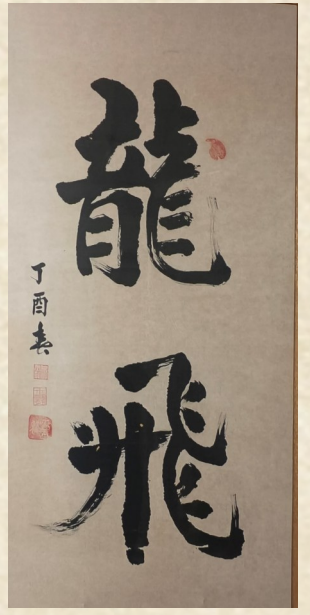 龍飛
丁酉春